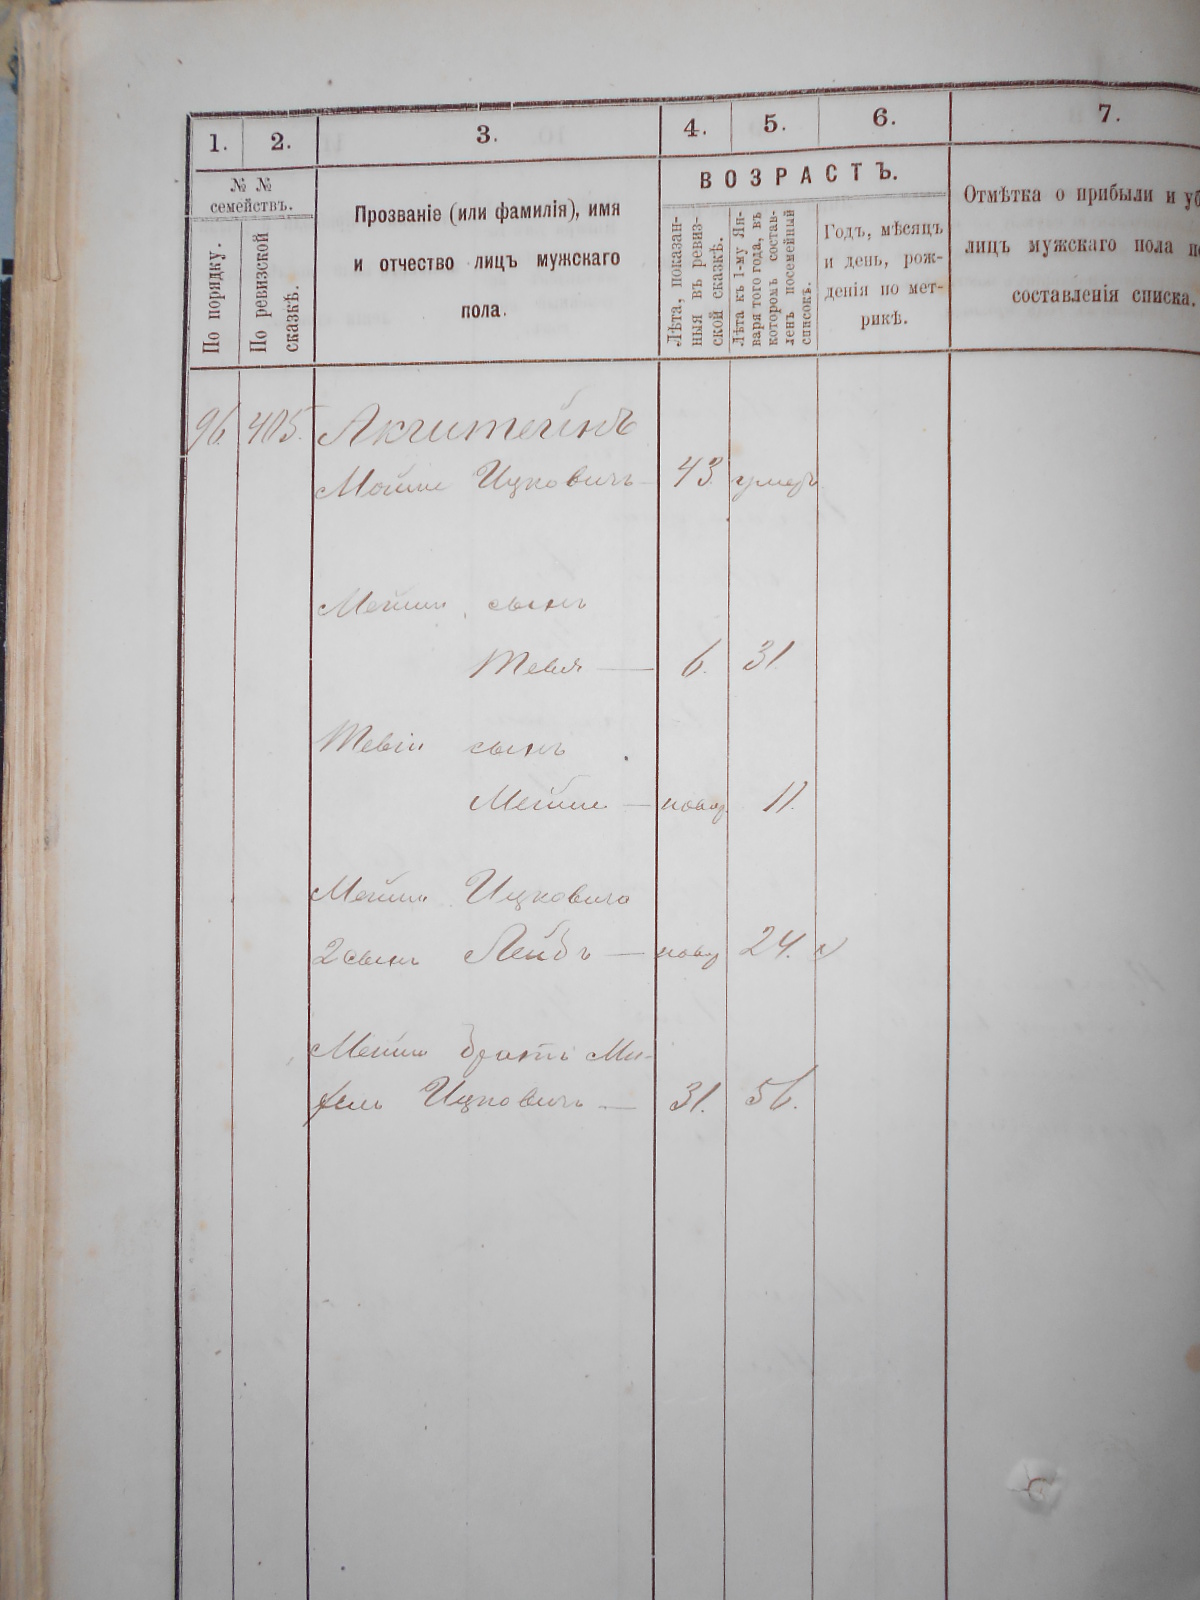 1. 2. 3. 4. 5. 6. 7.
№ № семействъ.
По порядку.
По ревизской сказкѣ.
Прозваніе (или фамилія), имя
и отчество лицъ мужскаго
пола.
ВОЗРАСТЪ.
Лѣта, показан-
ныя въ ревиз-
ской сказкѣ.
Лѣта къ 1-му Ян-
варя того года, въ
которомъ состав-
ленъ посемейный
списокъ.
Годъ, мѣсяцъ
и день, рож-
денія по мет-
рикѣ.
Отмѣтка о прибыли и уб
лицъ мужскаго пола п
составленія списка.
96. 405. Акштейнъ
Мойше Ицковичъ — 43. умеръ
Мейши сынъ
Тевія — 6. 31
Тевіи сынъ
Мейше — новор 11.
Мейши Ицковича
2 сынъ Лейбъ — новор 24.
Мейши братъ Ми-
хель Ицковичъ — 31. 56.